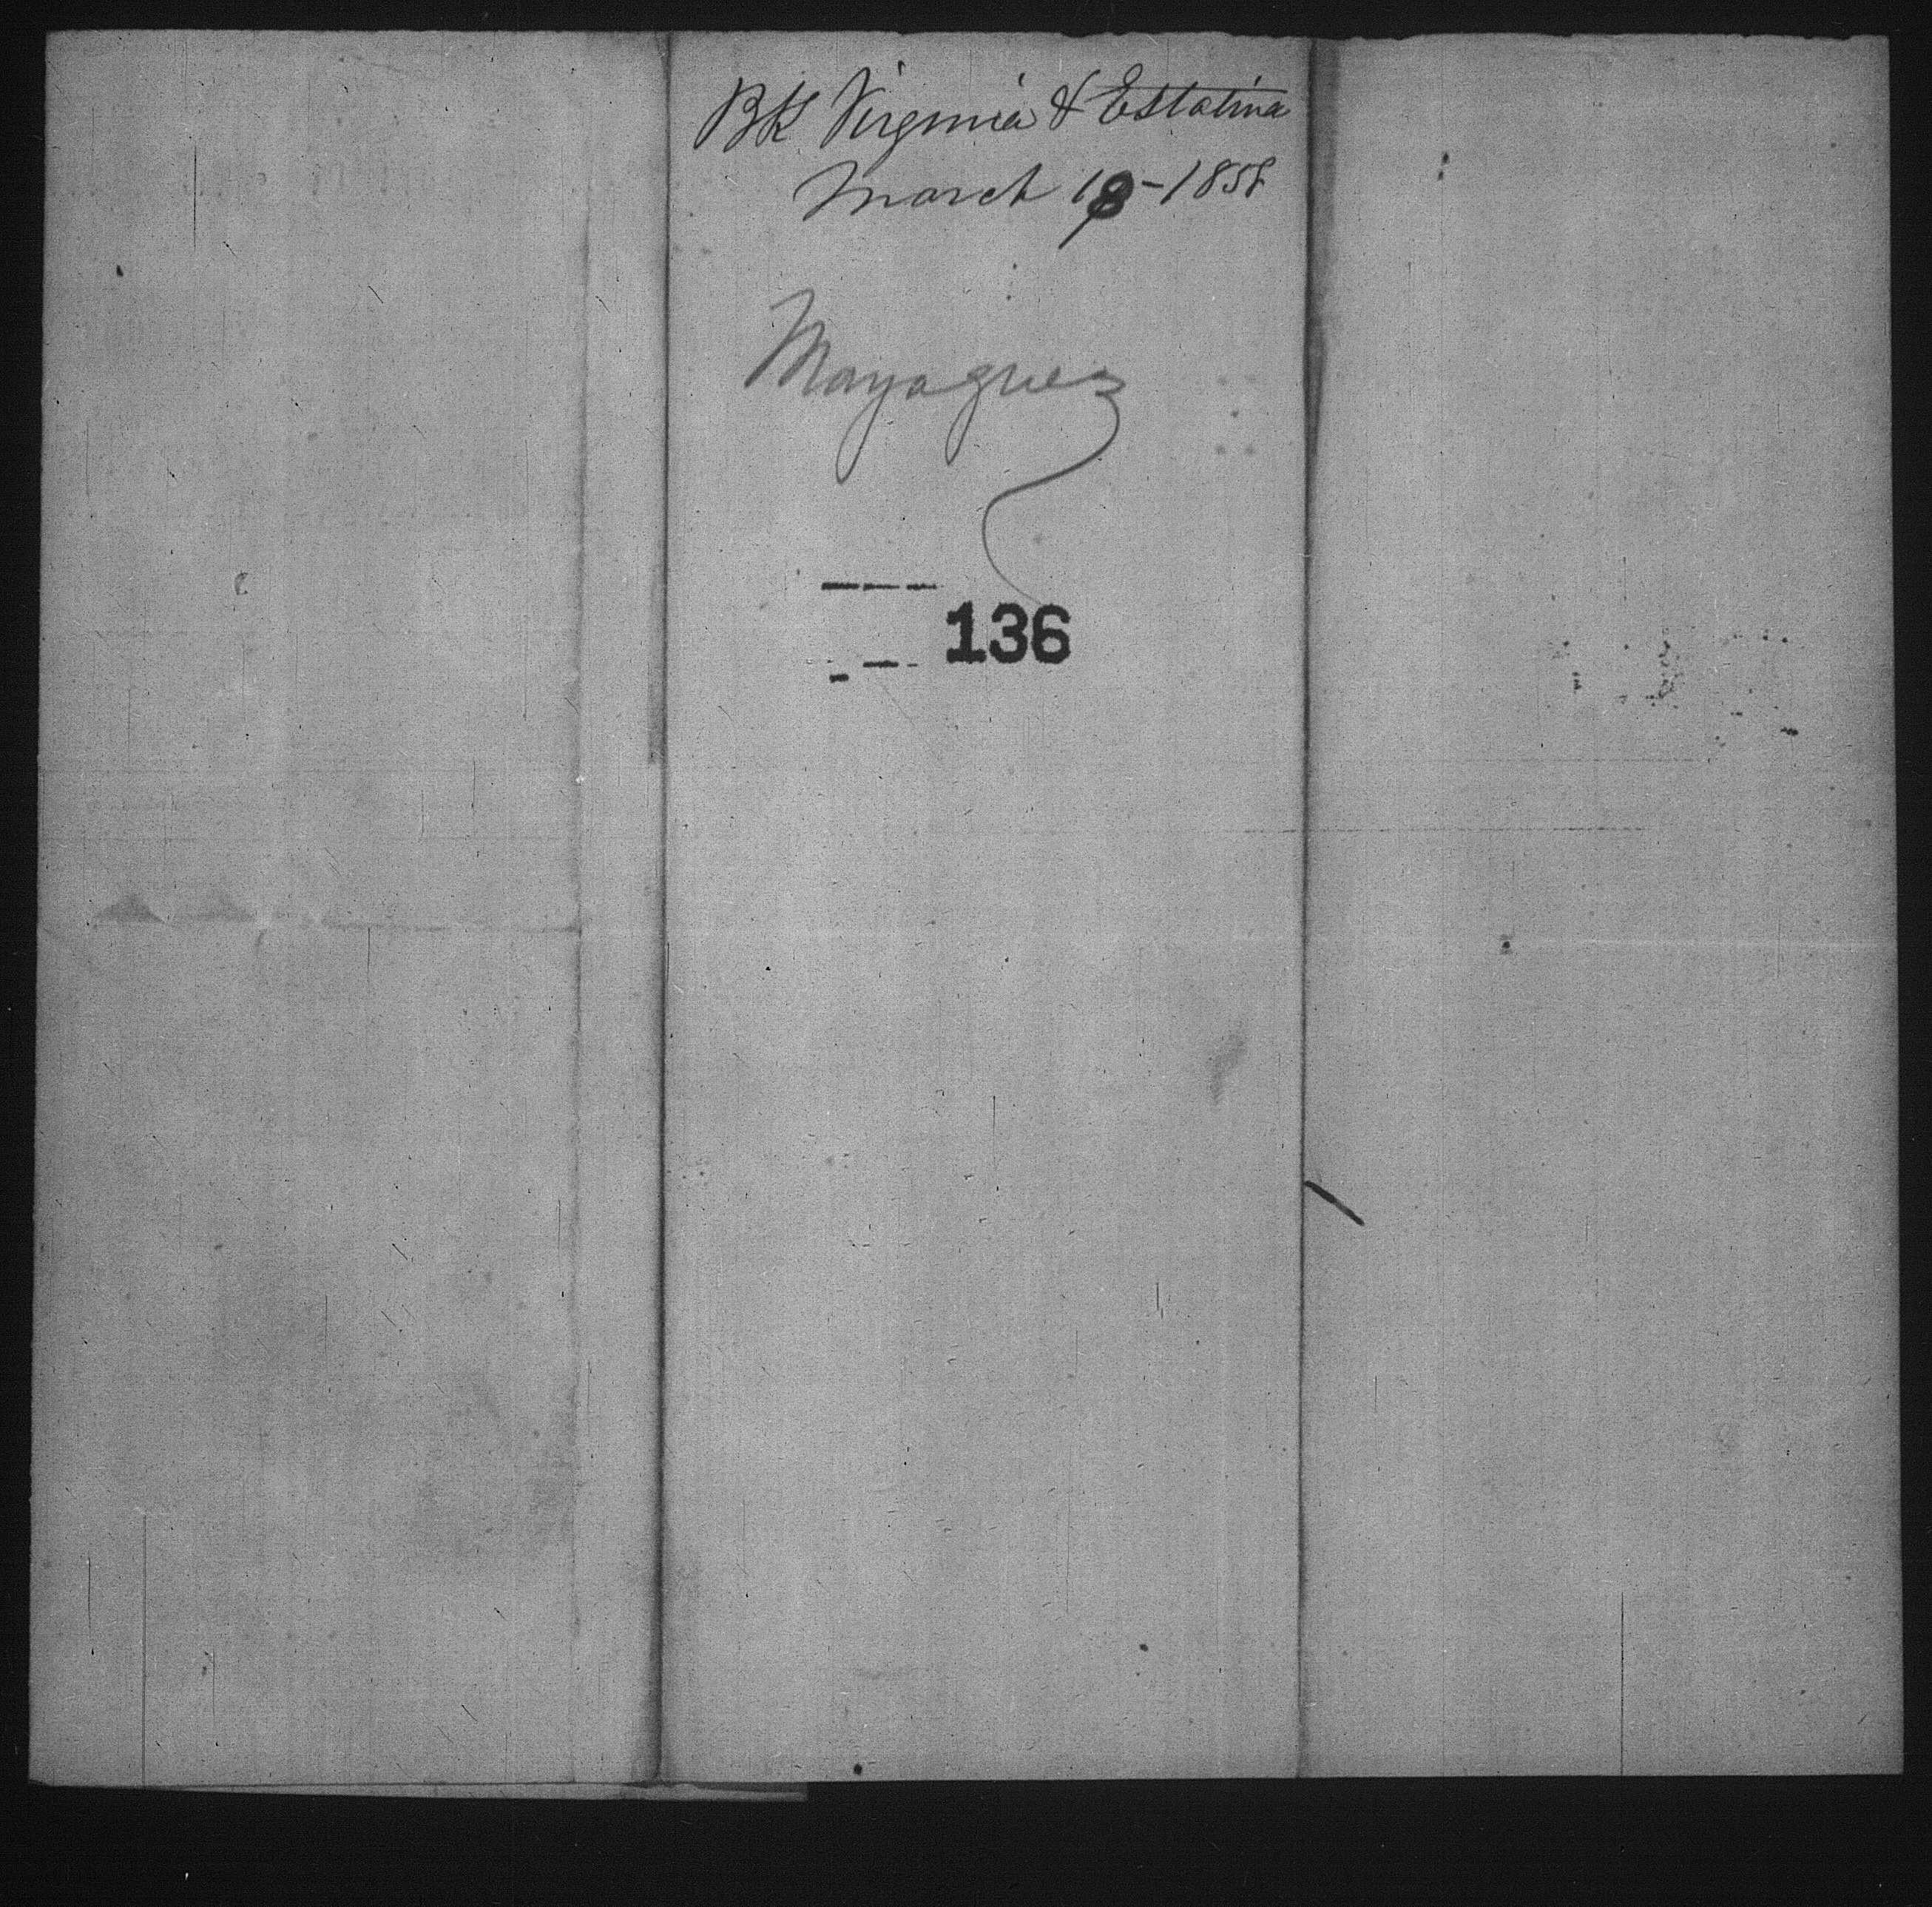 BK Virginia & Estatina
March 18-1858
Mayaguez
136